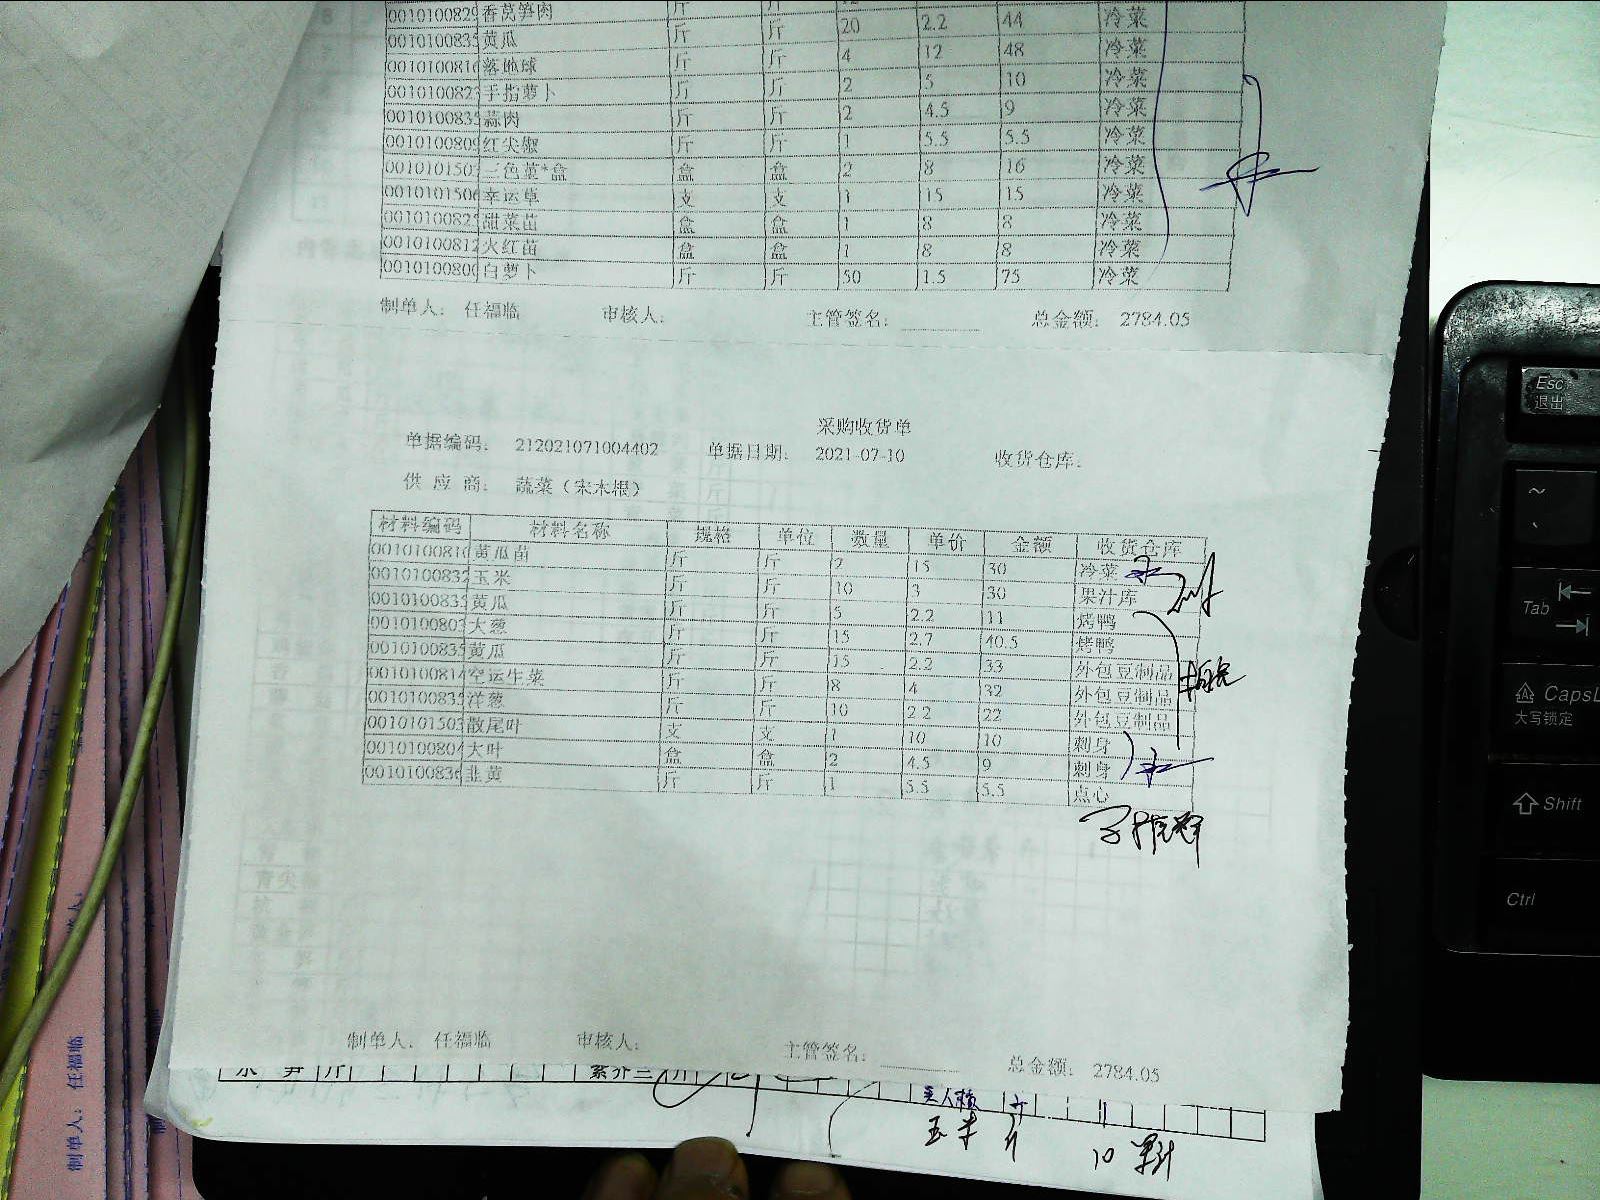 0010100829 香莴笋肉 斤 斤 12
0010100835 黄瓜 斤 斤 20 2.2 44 冷菜
0010100816 落地球 斤 斤 4 12 48 冷菜
0010100823 手指萝卜 斤 斤 2 5 10 冷菜
0010100835 蒜肉 斤 斤 2 4.5 9 冷菜
0010100809 红尖椒 斤 斤 1 5.5 5.5 冷菜
001010150 三色堇*盒 盒 盒 2 8 16 冷菜
0010101506 幸运草 支 支 1 15 15 冷菜
001010082 甜菜苗 盒 盒 1 8 8 冷菜
0010100812 火红苗 盒 盒 1 8 8 冷菜
0010100800 白萝卜 斤 斤 50 1.5 75 冷菜
制单人： 任福临 审核人： 主管签名： 总金额： 2784.05
采购收货单
单据编码： 212021071004402 单据日期： 2021-07-10 收货仓库：
供 应 商： 蔬菜（宋木根）
材料编码 材料名称 规格 单位 数量 单价 金额 收货仓库
0010100810 黄瓜茴 斤 斤 2 15 30 冷菜
0010100832 玉米 斤 斤 10 3 30 果汁库
0010100835 黄瓜 斤 斤 5 2.2 11 烤鸭
0010100803 大葱 斤 斤 15 2.7 40.5 烤鸭
0010100835 黄瓜 斤 斤 15 2.2 33 外包豆制品
0010100814 空运生菜 斤 斤 8 4 32 外包豆制品
0010100835 洋葱 斤 斤 10 2.2 22 外包豆制品
0010101503 散尾叶 支 支 1 10 10 刺身
0010100804 大叶 盒 盒 2 4.5 9 刺身
0010100836 韭黄 斤 斤 1 5.5 5.5 点心
制单人： 任福临 审核人： 主管签名： 总金额： 2784.05
斤
玉米 斤 10 果汁
制单人： 任福临
Esc
退出
~
Tab
CapsL
大写锁定
Shift
Ctrl